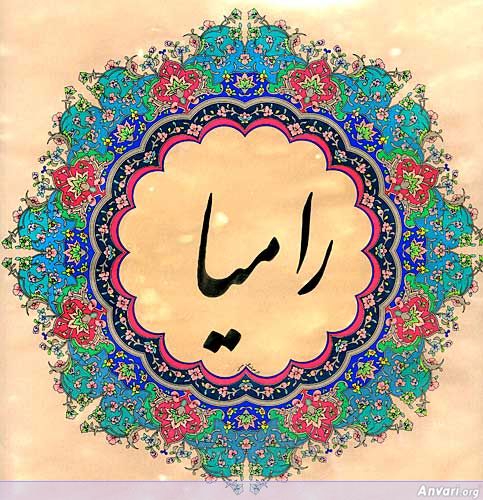 رامیا
Anvari.org